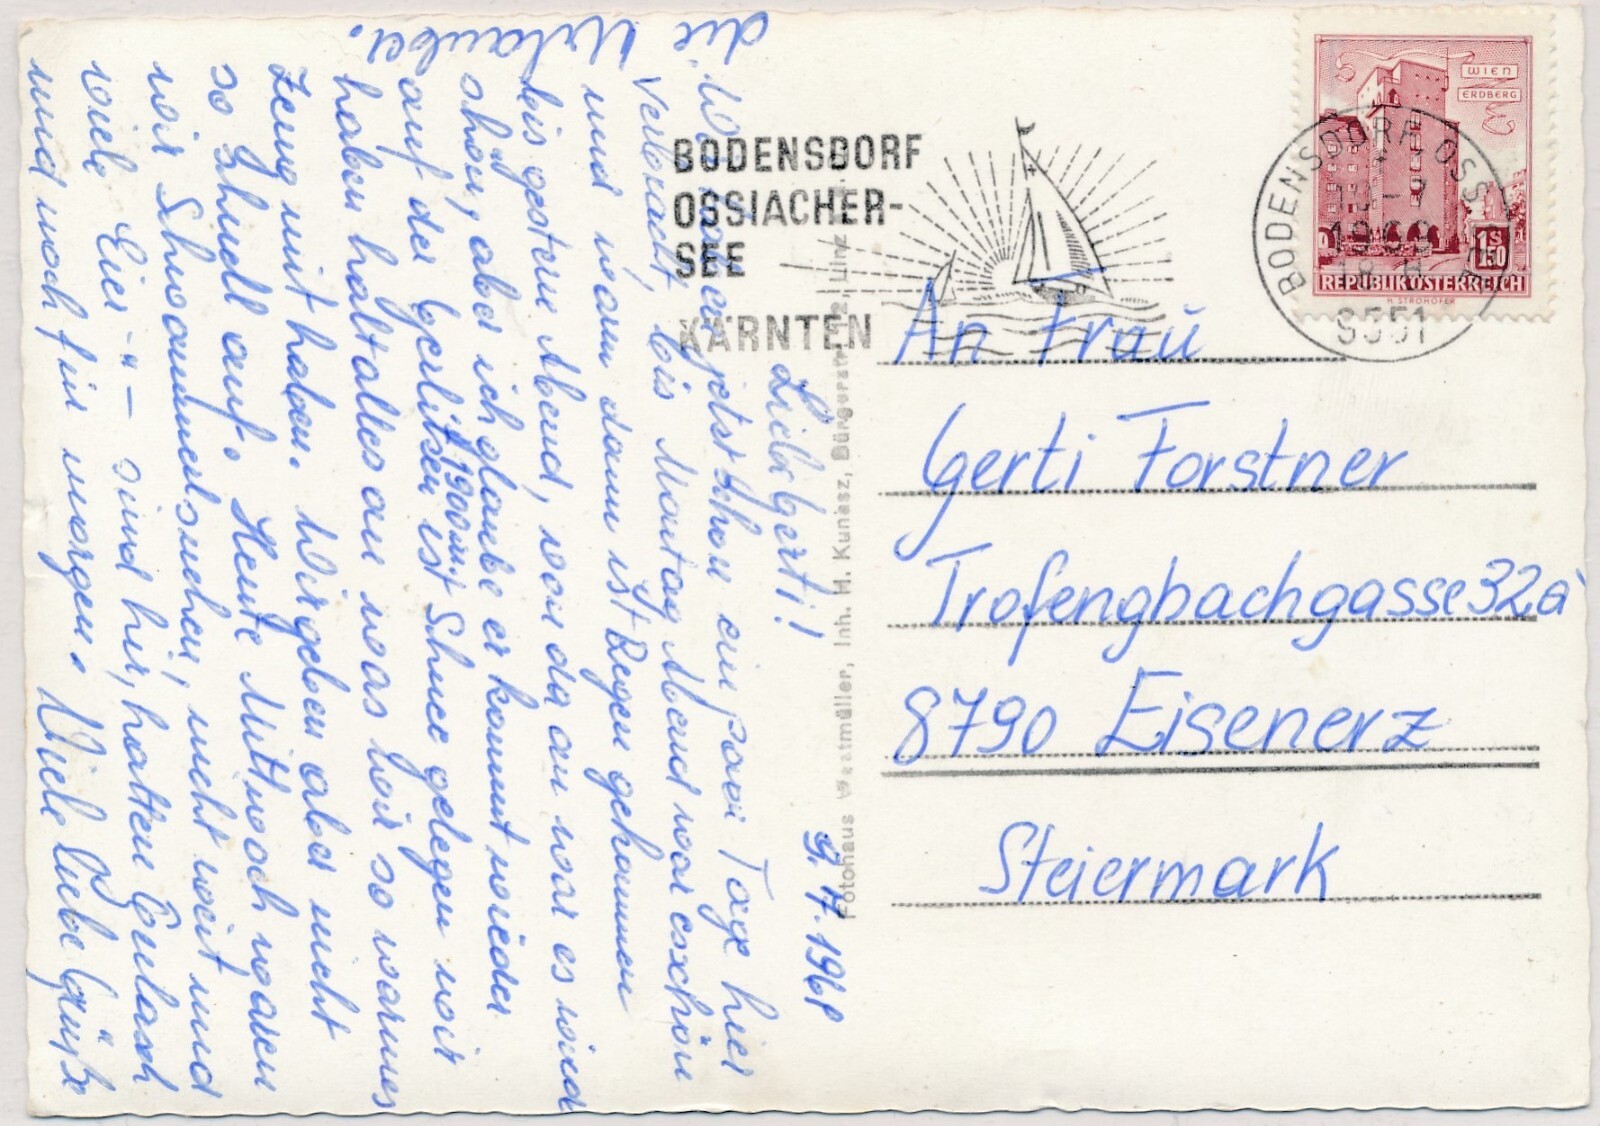 BODENSDORF
OSSIACHER-
SEE
KÄRNTEN
WIEN
ERDBERG
1S
1.50
REPUBLIK ÖSTERREICH
H. STROHOFER
BODENSDORF OSSI
10-7
18
9551
An Frau
Gerti Forstner
Trofengbachgasse 32a
8790 Eisenerz
Steiermark
Fotohaus Westmüller, Inh. H. Kunasz, Bürgerstraße, Linz
9.7.1968
Liebe Gerti!
Wir haben jetzt schon ein paar Tage hier
verbracht, bis Montag Abend war es schön
und warm dann ist Regen gekommen
bis gestern Abend, von da an war es wind
schön, aber ich glaube er kommt wieder
auf der Gerlitzen ist Schnee gelegen wir
1900m
haben halt alles an was wir so warmes
Zeug mit haben. Wir geben aber nicht
so schnell auf. Heute Mittwoch waren
wir Schwammerlsuchen, nicht weit und
viele "Eier" – sind hir, hatten Gulasch
und noch für morgen. Viele liebe Grüße
die Urlauber.